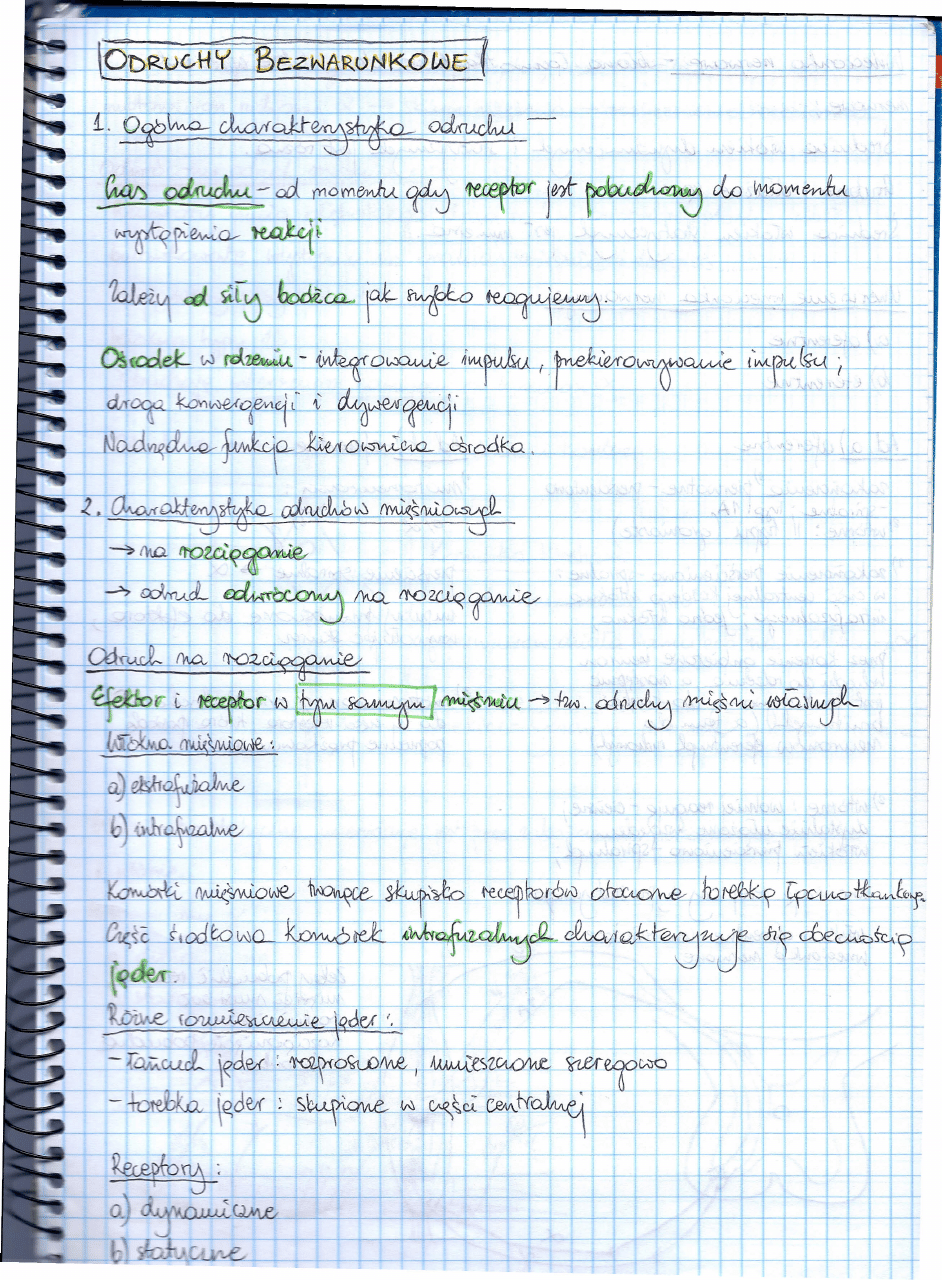 ODRUCHY BEZWARUNKOWE
1. Ogólna charakterystyka odruchu
Czas odruchu - od momentu gdy receptor jest pobudzony do momentu
wystąpienia reakcji
Zależy od siły bodźca jak szybko reagujemy.
Ośrodek w rdzeniu - integrowanie impulsu, przekierowywanie impulsu;
droga konwergencji i dywergencji
Nadrzędna funkcja kierownicza ośrodka.
2. Charakterystyka odruchów mięśniowych
→ na rozciąganie
→ odruch odwrócony na rozciąganie
Odruch na rozciąganie
Efektor i receptor w tym samym mięśniu → tzw. odruchy mięśni własnych
Włókna mięśniowe:
a) ekstrafuzalne
b) intrafuzalne
Komórki mięśniowe tworzące skupisko receptorów otoczone torebką łącznotkankową.
Część środkowa komórek intrafuzalnych charakteryzuje się obecnością
jąder.
Różne rozmieszczenie jąder:
- łańcuch jąder: rozproszone, umieszczone szeregowo
- torebka jąder: skupione w części centralnej
Receptory:
a) dynamiczne
b) statyczne